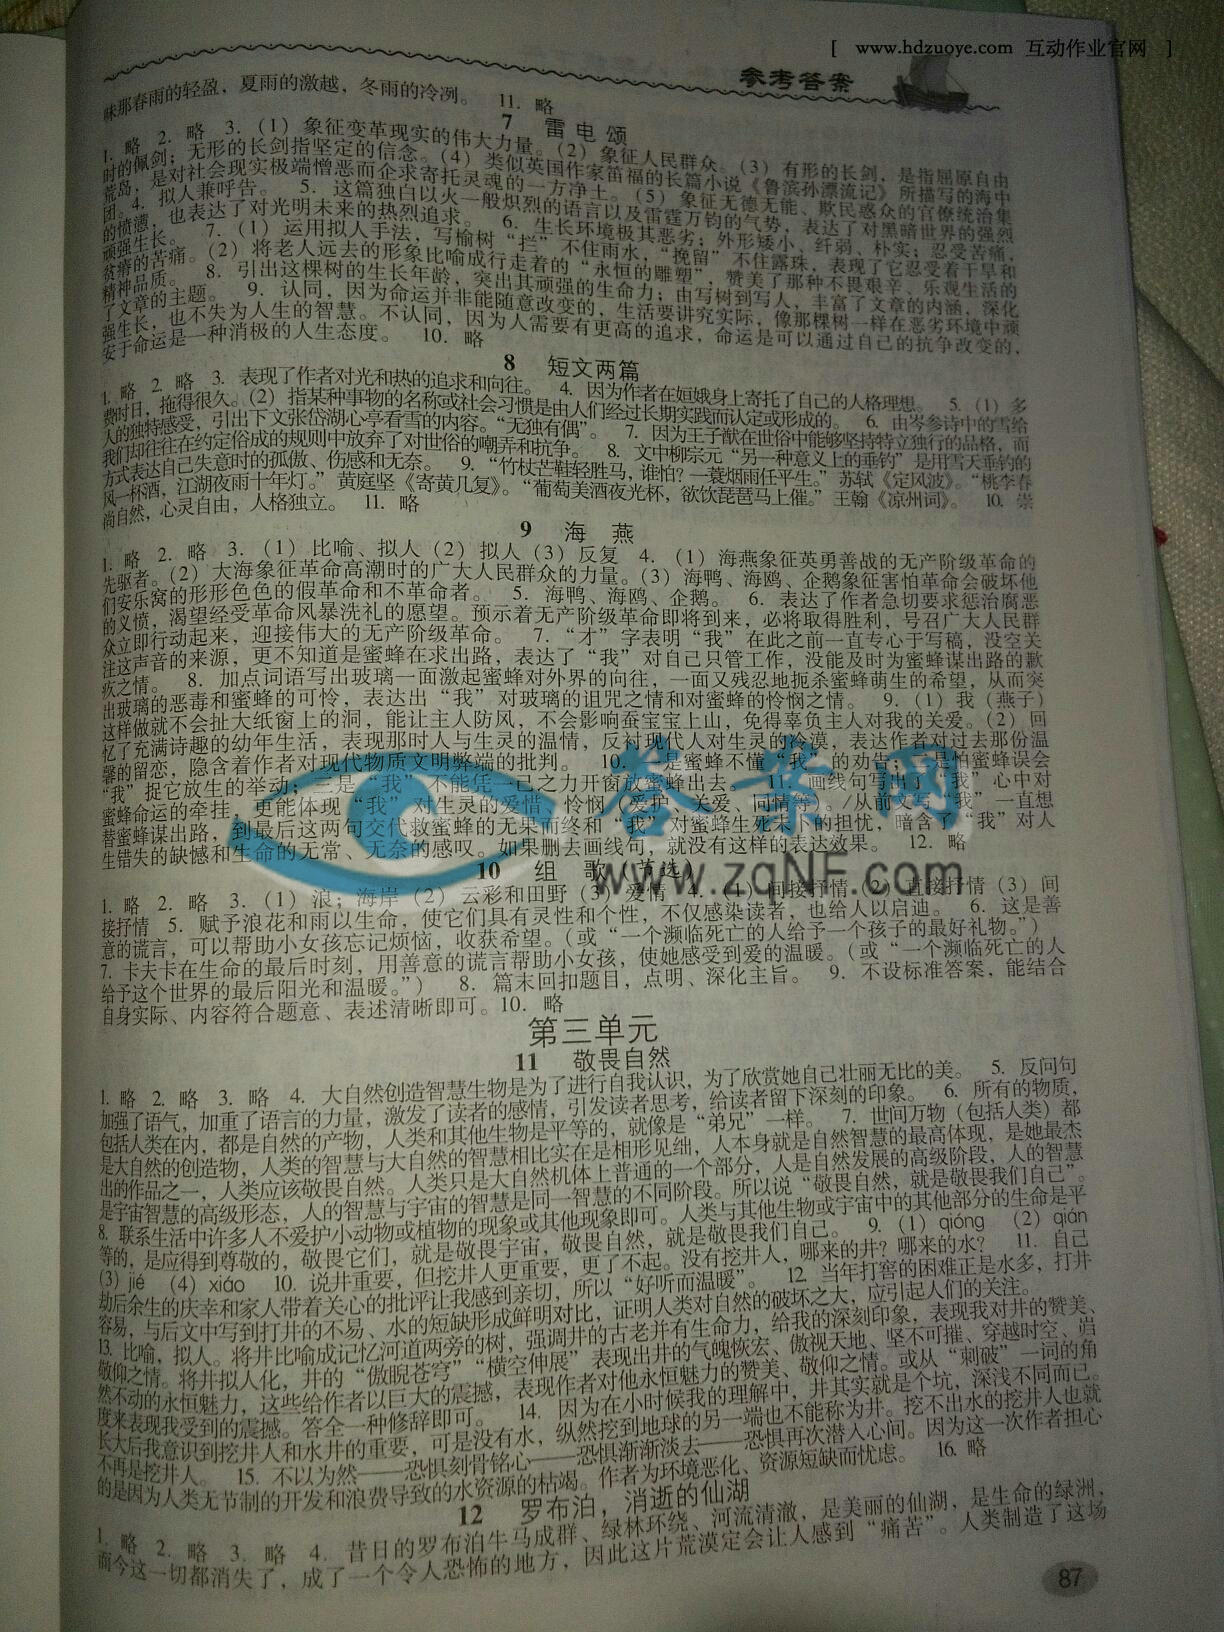 [ www.hdzuoye.com 互动作业官网 ]
参考答案
味那春雨的轻盈，夏雨的激越，冬雨的冷冽。 11. 略
7 雷电颂
1. 略 2. 略 3. (1) 象征变革现实的伟大力量。(2) 象征人民群众。(3) 有形的长剑，是指屈原自由
时的佩剑；无形的长剑指坚定的信念。(4) 类似英国作家笛福的长篇小说《鲁滨孙漂流记》所描写的海中
荒岛，是对社会现实极端憎恶而企求寄托灵魂的一方净土。(5) 象征无德无能、欺民惑众的官僚统治集
团。4. 拟人兼呼告。 5. 这篇独白以火一般炽烈的语言以及雷霆万钧的气势，表达了对黑暗世界的强烈
的愤懑，也表达了对光明未来的热烈追求。 6. 生长环境极其恶劣；外形矮小、纤弱、朴实；忍受苦痛，
顽强生长。 7. (1) 运用拟人手法，写榆树“拦”不住雨水，“挽留”不住露珠，表现了它忍受着干旱和
贫瘠的苦痛。(2) 将老人远去的形象比喻成行走着的“永恒的雕塑”，赞美了那种不畏艰辛、乐观生活的
精神品质。 8. 引出这棵树的生长年龄，突出其顽强的生命力；由写树到写人，丰富了文章的内涵，深化
了文章的主题。 9. 认同，因为命运并非能随意改变的，生活要讲究实际，像那棵树一样在恶劣环境中顽
强生长，也不失为人生的智慧。不认同，因为人需要有更高的追求，命运是可以通过自己的抗争改变的，
安于命运是一种消极的人生态度。 10. 略
8 短文两篇
1. 略 2. 略 3. 表现了作者对光和热的追求和向往。 4. 因为作者在姮娥身上寄托了自己的人格理想。 5. (1) 多
费时日，拖得很久。(2) 指某种事物的名称或社会习惯是由人们经过长期实践而认定或形成的。 6. 由岑参诗中的雪给
人的独特感受，引出下文张岱湖心亭看雪的内容。“无独有偶”。 7. 因为王子猷在世俗中能够坚持特立独行的品格，而
我们却往往在约定俗成的规则中放弃了对世俗的嘲弄和抗争。 8. 文中柳宗元“另一种意义上的垂钓”是用雪天垂钓的
方式表达自己失意时的孤傲、伤感和无奈。 9. “竹杖芒鞋轻胜马，谁怕？一蓑烟雨任平生。”苏轼《定风波》。“桃李春
风一杯酒，江湖夜雨十年灯。”黄庭坚《寄黄几复》。“葡萄美酒夜光杯，欲饮琵琶马上催。”王翰《凉州词》。 10. 崇
尚自然，心灵自由，人格独立。 11. 略
9 海燕
1. 略 2. 略 3. (1) 比喻、拟人 (2) 拟人 (3) 反复 4. (1) 海燕象征英勇善战的无产阶级革命的
先驱者。(2) 大海象征革命高潮时的广大人民群众的力量。(3) 海鸭、海鸥、企鹅象征害怕革命会破坏他
们安乐窝的形形色色的假革命和不革命者。 5. 海鸭、海鸥、企鹅。 6. 表达了作者急切要求惩治腐恶
的义愤，渴望经受革命风暴洗礼的愿望。预示着无产阶级革命即将到来，必将取得胜利，号召广大人民群
众立即行动起来，迎接伟大的无产阶级革命。 7. “才”字表明“我”在此之前一直专心于写稿，没空关
注这声音的来源，更不知道是蜜蜂在求出路，表达了“我”对自己只管工作，没能及时为蜜蜂谋出路的歉
疚之情。 8. 加点词语写出玻璃一面激起蜜蜂对外界的向往，一面又残忍地扼杀蜜蜂萌生的希望，从而突
出玻璃的恶毒和蜜蜂的可怜，表达出“我”对玻璃的诅咒之情和对蜜蜂的怜悯之情。 9. (1) 我（燕子）
这样做就不会扯大纸窗上的洞，能让主人防风，不会影响蚕宝宝上山，免得辜负主人对我的关爱。(2) 回
忆了充满诗趣的幼年生活，表现那时人与生灵的温情，反衬现代人对生灵的冷漠，表达作者对过去那份温
馨的留恋，隐含着作者对现代物质文明弊端的批判。 10. 一是蜜蜂不懂“我”的劝告；二是怕蜜蜂误会
“我”捉它放生的举动；三是“我”不能凭一己之力开窗放蜜蜂出去。 11. 画线句写出了“我”心中对
蜜蜂命运的牵挂，更能体现“我”对生灵的爱惜、怜悯（爱护、关爱、同情等）。/从前文写“我”一直想
替蜜蜂谋出路，到最后这两句交代救蜜蜂的无果而终和“我”对蜜蜂生死未卜的担忧，暗含了“我”对人
生错失的缺憾和生命的无常、无奈的感叹。如果删去画线句，就没有这样的表达效果。 12. 略
答案网
www.zqNF.com
10 组歌（节选）
1. 略 2. 略 3. (1) 浪；海岸 (2) 云彩和田野 (3) 爱情 4. (1) 间接抒情 (2) 直接抒情 (3) 间
接抒情 5. 赋予浪花和雨以生命，使它们具有灵性和个性，不仅感染读者，也给人以启迪。 6. 这是善
意的谎言，可以帮助小女孩忘记烦恼，收获希望。（或“一个濒临死亡的人给予一个孩子的最好礼物。”）
7. 卡夫卡在生命的最后时刻，用善意的谎言帮助小女孩，使她感受到爱的温暖。（或“一个濒临死亡的人
给予这个世界的最后阳光和温暖。”） 8. 篇末回扣题目，点明、深化主旨。 9. 不设标准答案，能结合
自身实际、内容符合题意、表述清晰即可。10. 略
第三单元
11 敬畏自然
1. 略 2. 略 3. 略 4. 大自然创造智慧生物是为了进行自我认识，为了欣赏她自己壮丽无比的美。 5. 反问句
加强了语气，加重了语言的力量，激发了读者的感情，引发读者思考，给读者留下深刻的印象。 6. 所有的物质，
包括人类在内，都是自然的产物，人类和其他生物是平等的，就像是“弟兄”一样。 7. 世间万物（包括人类）都
是大自然的创造物，人类的智慧与大自然的智慧相比实在是相形见绌，人本身就是自然智慧的最高体现，是她最杰
出的作品之一，人类应该敬畏自然。人类只是大自然机体上普通的一个部分，人是自然发展的高级阶段，人的智慧
是宇宙智慧的高级形态，人的智慧与宇宙的智慧是同一智慧的不同阶段。所以说“敬畏自然，就是敬畏我们自己”。
8. 联系生活中许多人不爱护小动物或植物的现象或其他现象即可。人类与其他生物或宇宙中的其他部分的生命是平
等的，是应得到尊敬的，敬畏它们，就是敬畏宇宙，敬畏自然，就是敬畏我们自己。 9. (1) qióng (2) qián
(3) jié (4) xiáo 10. 说井重要，但挖井人更重要，更了不起。没有挖井人，哪来的井？哪来的水？ 11. 自己
劫后余生的庆幸和家人带着关心的批评让我感到亲切，所以“好听而温暖”。 12. 当年打窖的困难正是水多，打井
容易，与后文中写到打井的不易、水的短缺形成鲜明对比，证明人类对自然的破坏之大，应引起人们的关注。
13. 比喻，拟人。将井比喻成记忆河道两旁的树，强调井的古老并有生命力，给我的深刻印象，表现我对井的赞美、
敬仰之情。将井拟人化，井的“傲睨苍穹”“横空伸展”表现出井的气魄恢宏、傲视天地、坚不可摧、穿越时空、岿
然不动的永恒魅力，这些给作者以巨大的震撼，表现作者对他永恒魅力的赞美、敬仰之情。或从“刺破”一词的角
度来表现我受到的震撼。答全一种修辞即可。 14. 因为在小时候我的理解中，井其实就是个坑，深浅不同而已。
长大后我意识到挖井人和水井的重要，可是没有水，纵然挖到地球的另一端也不能称为井。挖不出水的挖井人也就
不再是挖井人。 15. 不以为然——恐惧刻骨铭心——恐惧渐渐淡去——恐惧再次潜入心间。因为这一次作者担心
的是因为人类无节制的开发和浪费导致的水资源的枯竭。作者为环境恶化、资源短缺而忧虑。 16. 略
12 罗布泊，消逝的仙湖
1. 略 2. 略 3. 略 4. 昔日的罗布泊牛马成群、绿林环绕、河流清澈，是美丽的仙湖，是生命的绿洲，
而今这一切都消失了，成了一个令人恐怖的地方，因此这片荒漠定会让人感到“痛苦”。人类制造了这场
87